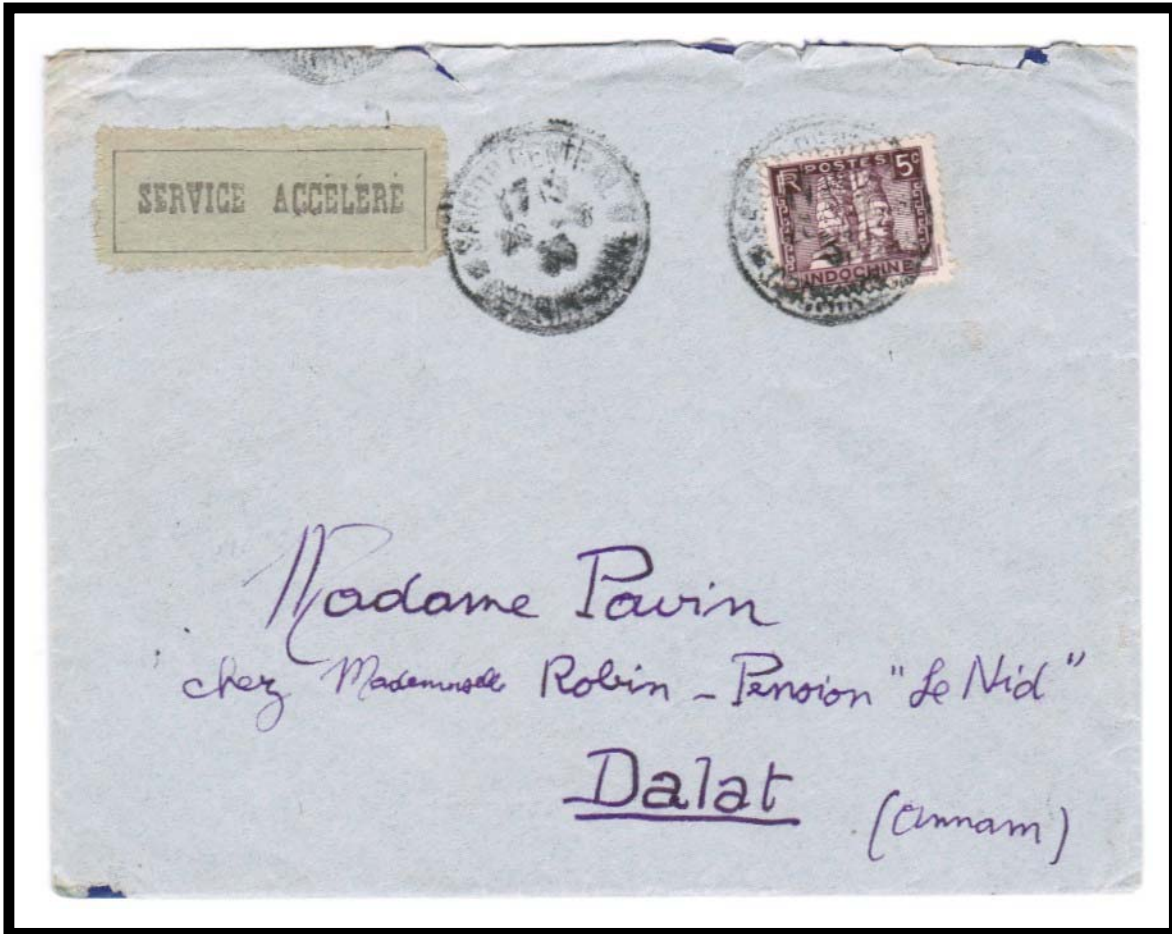 SERVICE ACCÉLÉRÉ
SAIGON CENTRAL
RF POSTES 5c
INDOCHINE
Madame Pavin
chez Mademoiselle Robin - Pension "Le Nid"
Dalat
(Annam)